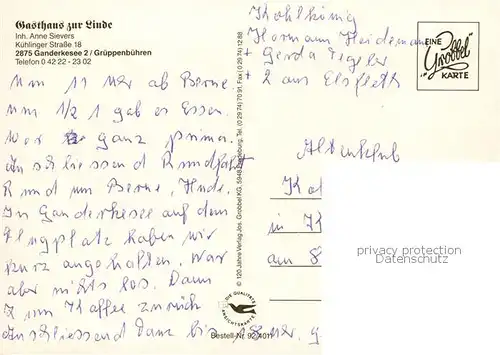 Gasthaus zur Linde
Inh. Anne Sievers
Kühlinger Straße 18
2875 Ganderkesee 2 / Grüppenbühren
Telefon 0 42 22 - 23 02
Um 11 Uhr ab Berne.
um 1/2 1 gab es Essen.
War ganz prima.
Anschliessend Rundfahrt
Rund um Berne, Hude.
In Ganderkesee auf dem
Flugplatz haben wir
kurz angehalten. War
aber nichts los. Dann
zum Kaffee zurück
Anschliessend Tanz bis 18 Uhr.
© 120 Jahre Verlag Jos. Grobbel KG, 5948 Fredeburg, Tel. (0 29 74) 70 91, Fax (0 29 74) 12 88
DIE QUALITÄTS
ANSICHTSKARTE
Bestell-Nr. 92/4011
Kohlkönig
Hermann Heidemann
+ Gerda
+ 2 aus Elsfleth
EINE
Grobbel
KARTE
Altenklub
in
am 8
privacy protection
Datenschutz